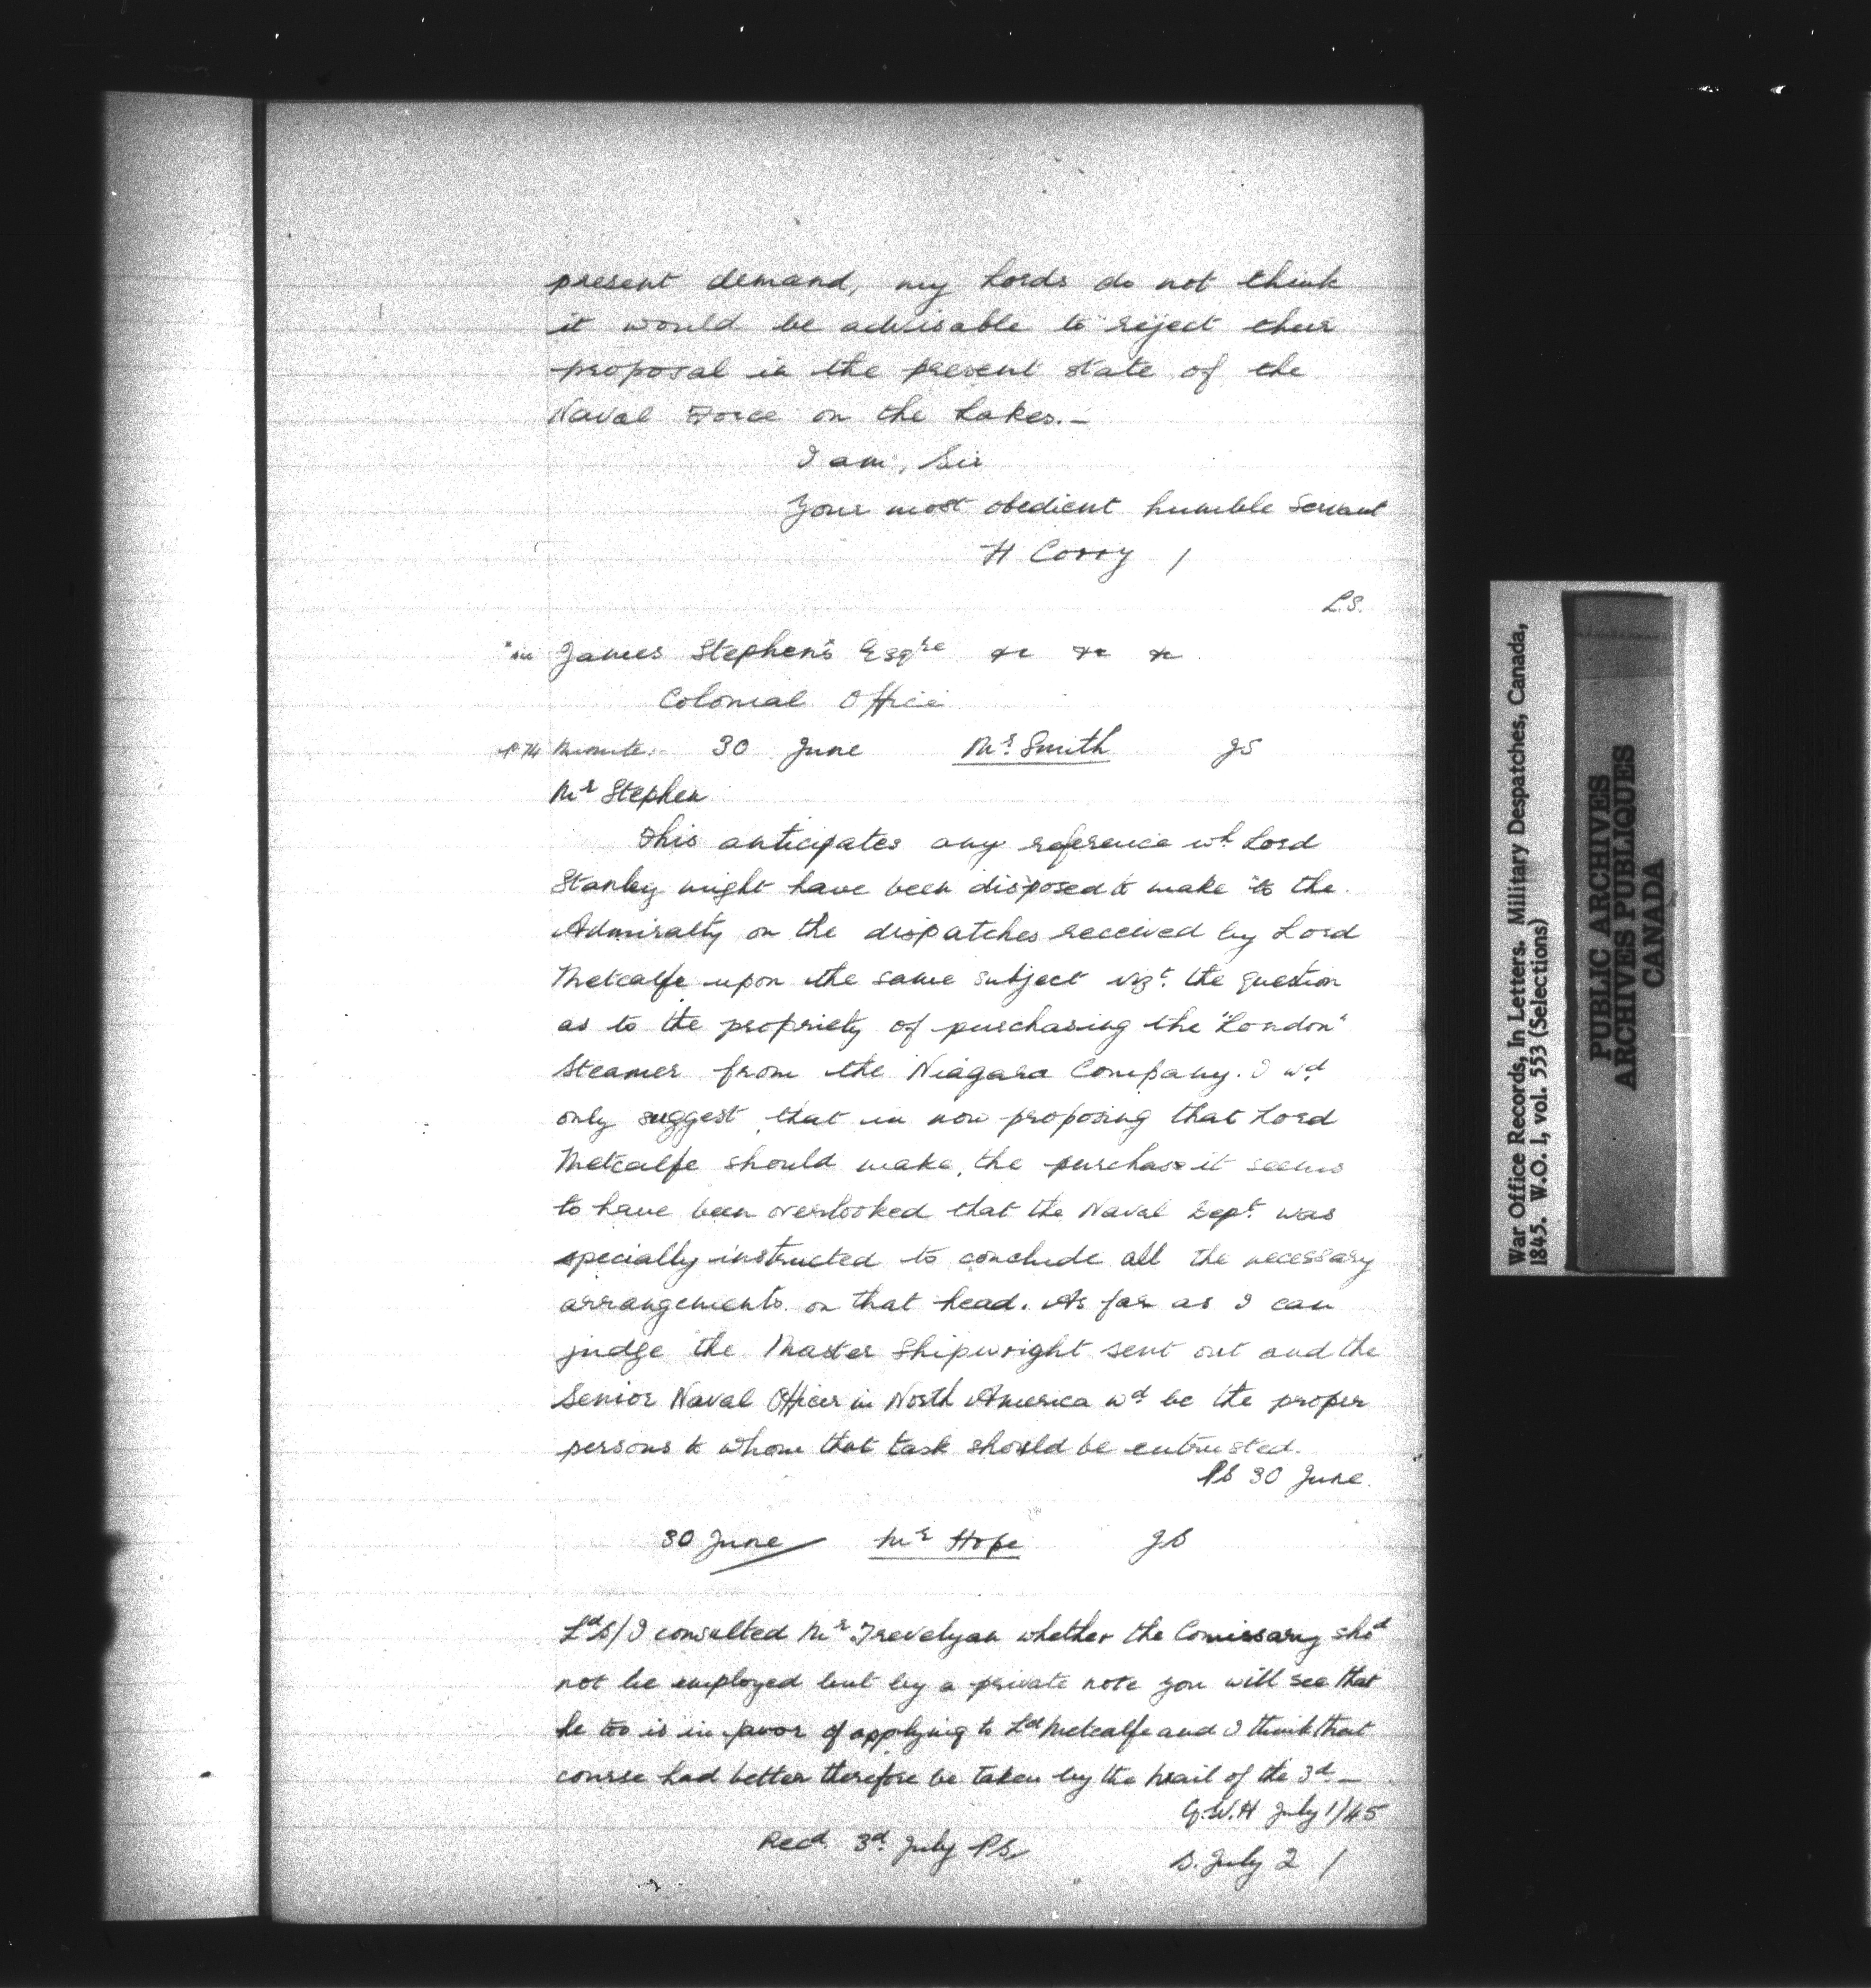 present demand, my Lords do not think
it would be advisable to reject their
proposal in the present state of the
Naval Force on the Lakes.—
I am, Sir
Your most obedient humble Servant
H Corry /
L.S.
James Stephen's Esqre &c &c &c
Colonial Office
p 74 Minute:- 30 June Mr. Smith JS
Mr Stephen
This anticipates any reference wh Lord
Stanley might have been disposed to make to the
Admiralty on the dispatches received by Lord
Metcalfe upon the same subject vizt. the question
as to the propriety of purchasing the "London"
Steamer from the Niagara Company. I wd
only suggest that in now proposing that Lord
Metcalfe should make the purchase it seems
to have been overlooked that the Naval Dept. was
specially instructed to conclude all the necessary
arrangements on that head. As far as I can
judge the Master Shipwright sent out and the
Senior Naval Officer in North America wd be the proper
persons to whom that task should be entrusted.
PS 30 June.
30 June Mr Hope JS
Ld S/ I consulted Mr. Trevelyan whether the Comissary shd
not be employed but by a private note you will see that
he too is in favor of applying to Ld Metcalfe and I think that
course had better therefore be taken by the mail of the 3d.—
G.W.H July 1/45
Recd. 3d. July PS
S. July 2 /
War Office Records, In Letters. Military Despatches, Canada,
1845. W.O. 1, vol. 553 (Selections)
PUBLIC ARCHIVES
ARCHIVES PUBLIQUES
CANADA